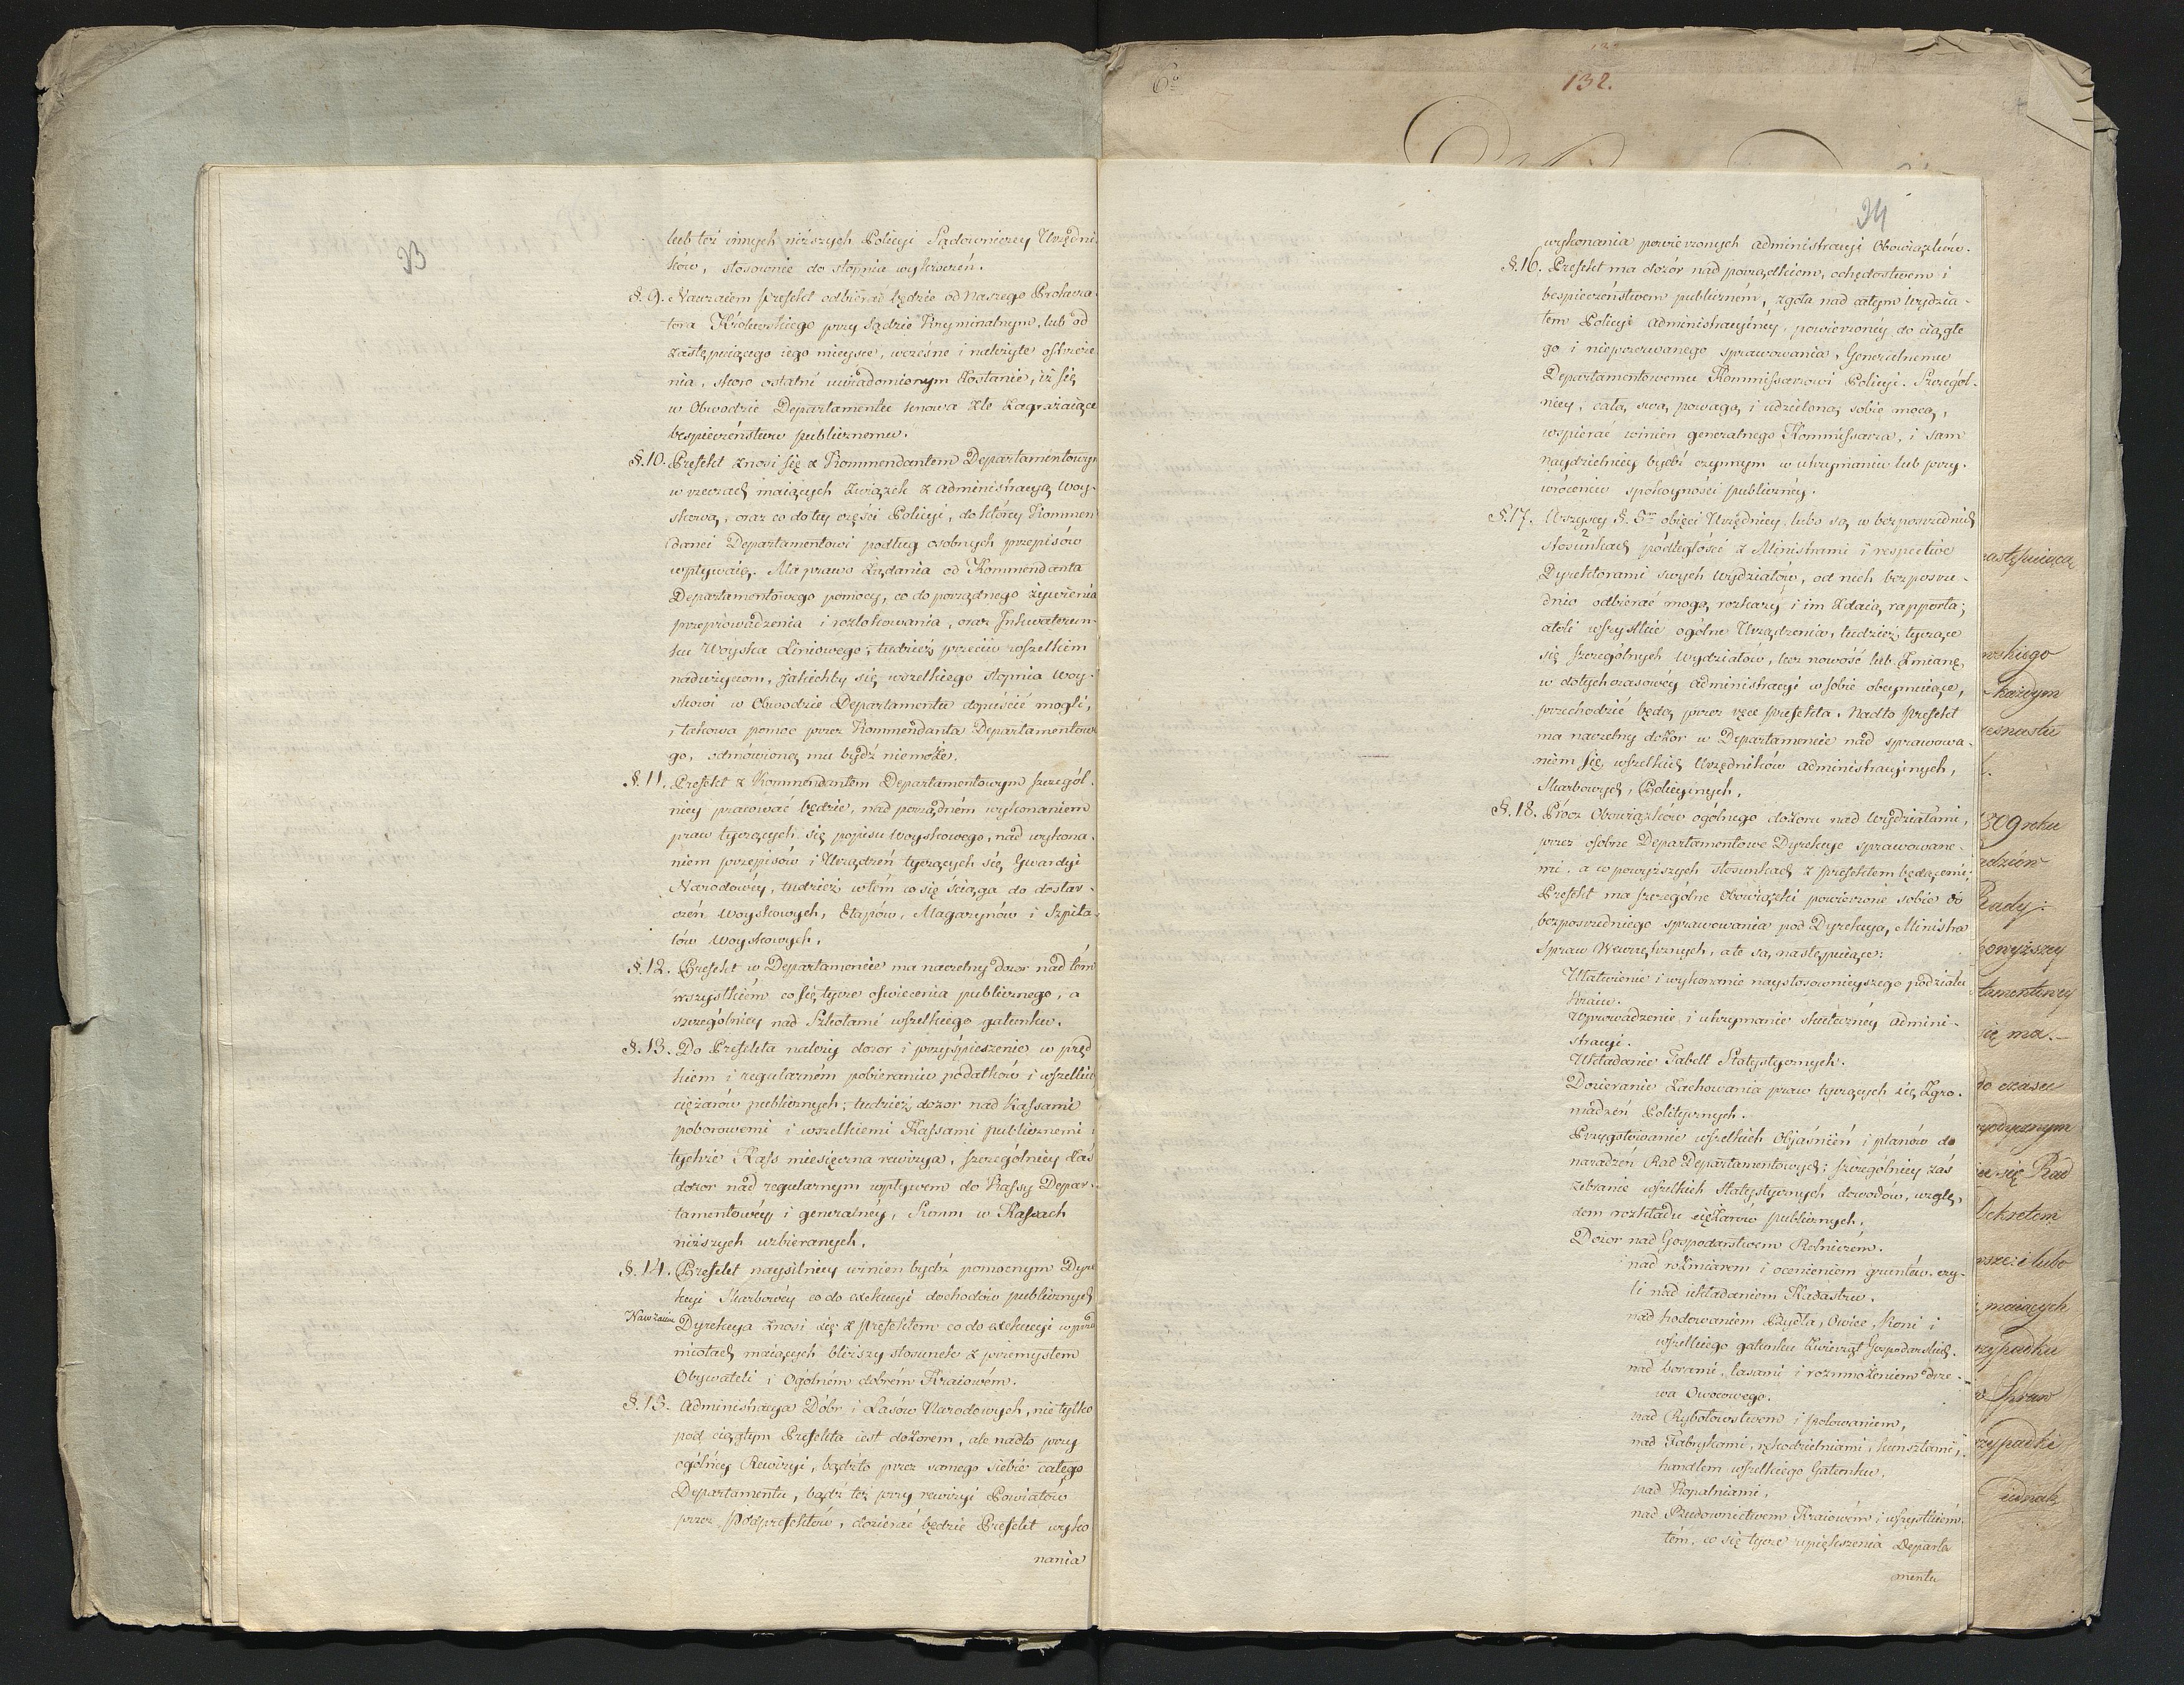 23
lub też innych niższych Policyi Sądowniczey Urzędni-
ków, stosownie do stopnia wykroczeń.
§. 9. Nawzaiem prefekt odbierać będzie od Naszego Prokura-
tora Królewskiego przy Sądzie Kryminalnym, lub od
zastępuiącego iego mieysce, wczesne i należyte ostrzeże-
nia, skoro ostatni uwiadomionym zostanie, iż się
w Obwodzie Departamentu knowa złe zagrażaiące
bespieczeństwu publicznemu.
§. 10. Prefekt znosi się z Kommendantem Departamentowym
w rzeczach maiących związek z administracyą Woy-
skową, oraz co do tey części Policyi, do któréy Kommen
danci Departamentowi podług osobnych przepisów
wpływaią. Ma prawo żądania od Kommendanta
Departamentowego pomocy, co do porządnego żywienia
przeprowadzenia i rozlokowania, oraz Inkwaterun-
ku Woyska Liniowego; tudzież przeciw wszelkim
nadużyciom, jakichby się wszelkiego stopnia Woy-
skowi w Obwodzie Departamentu dopuścić mogli,
i takowa pomoc przez Kommendanta Departamentowe
go, odmówioną mu bydź niemoże.
§. 11. Prefekt z Kommendantem Departamentowym szczegól-
niey pracować będzie, nad porządném wykonaniem
praw tyczących się popisu Woyskowego, nad wykona-
niem przepisów i Urządzeń tyczących się Gwardyi
Narodowéy, tudzież w tém co się ściąga do dostar-
czeń Woyskowych, Etapów, Magazynów i Szpita-
lów Woyskowych.
§. 12. Prefekt w Departamencie ma naczelny dozor nad tém
wszystkiém co się tycze oświecenia publicznego, a
szczególniey nad Szkołami wszelkiego gatunku.
§. 13. Do Prefekta należy dozor i przyśpieszenie w pręd
kiem i regularném pobieraniu podatków i wszelkich
ciężarów publicznych; tudzież dozor nad Kassami
poborowemi i wszelkiemi Kassami publicznemi i
tychże Kass miesięczna rewizya, szczególniey zaś
dozor nad regularnym wpływem do Kassy Depar-
tamentowéy i generalnéy, Summ w Kassach
niższych uzbieranych.
§. 14. Prefekt naysilniey winien bydź pomocnym Dyre
kcyi Skarbowéy co do exekucyi dochodów publicznych
Nawzaiem Dyrekcya znosi się z Prefektem co do exekucyi w przed
miotach maiących bliższy stosunek z przemysłem
Obywateli i Ogólném dobrém Kraiowém.
§. 15. Administracya Dóbr i Lasów Narodowych, nie tylko
pod ciągłym Prefekta iest dozorem, ale nadto przy
ogólnéy Rewizyi, bądźto przez samego siebie całego
Departamentu, bądź też przy rewizyi Powiatów
przez Podprefektów, dozierać będzie Prefekt wyko
nania
6o
132.
24
wykonania powierzonych administracyi Obowiązków.
§. 16. Prefekt ma dozór nad porządkiem, ochędostwem i
bespieczeństwem publiczném, zgoła nad całym Wydzia-
łem Policyi Administracyinéy, powierzonéy do ciągłe
go i nieprzerwanego sprawowania, Generalnemu
Departamentowemu Kommissarzowi Policyi. Szczegól-
niey, całą swą powagą i udzieloną sobie mocą,
wspierać winien generalnego Kommissarza, i sam
naydzielniey bydź czynnym w utrzymaniu lub przy-
wróceniu spokoyności publicznéy.
§. 17. Wszyscy §. 5m obięci Urzędnicy, lubo są w bezposrednich
stosunkach podległości z Ministrami i respective
Dyrektorami swych Wydziałów, od nich bezposre-
dnio odbierać mogą rozkazy i im zdaią rapporta;
atoli wszystkie ogólne Urządzenia, tudzież tyczące
się szczególnych Wydziałów, lecz nowość lub Zmianę
w dotychczasowey administracyi w sobie obeymuiące,
przechodzić będą przez ręce prefekta. Nadto prefekt
ma naczelny dozor w Departamencie nad sprawowa-
niem się wszelkich Urzędników administracyinych,
Skarbowych, Policyinych.
§. 18. Prócz Obowiązków ogólnego dozoru nad Wydziałami,
przez osobne Departamentowe Dyrekcye sprawowane-
mi, a w powyższych stosunkach z prefektem będącemi;
Prefekt ma szczególne Obowiązki powierzone sobie do
bezposredniego sprawowania pod Dyrekcyą Ministra
Spraw Wewnętrznych, a te są następuiące:
Ułatwienie i wykonanie naystosownieyszego podziału
Kraiu.
Wprowadzenie i utrzymanie skuteczney admini-
stracyi.
Układanie Tabell Statystycznych.
Dozieranie Zachowania praw tyczących się Zgro-
madzeń Politycznych.
Przygotowanie wszelkich Objaśnień i planów do
naradzeń Rad Departamentowych; szczególniey zaś
zebranie wszelkich Statystycznych dowodów, wzglę-
dem rozkładu ciężarów publicznych.
Dozor nad Gospodarstwem Rolniczém.
nad rozmiarem i ocenieniem gruntów, czy-
li nad układaniem Kadastru.
nad hodowaniem Bydła, Owiec, Koni i
wszelkiego gatunku Zwierząt Gospodarskich.
nad borami, lasami i rozmnożeniem drze-
wa Owocowego.
nad Rybołowstwem i polowaniem,
nad Fabrykami, rękodzielniami, kunsztami,
handlem wszelkiego Gatunku,
nad Kopalniami,
nad Budownictwem Kraiowém i wszystkiém
tém, co się tycze upiększenia Departa
mentu
następuiąca
wskiego
każdym
809 roku
Rady:
powyższey
tamentowey
się ma.
do czasu
się Rad
Dekretem
maiących
rzypadku
rzypadki
iednak